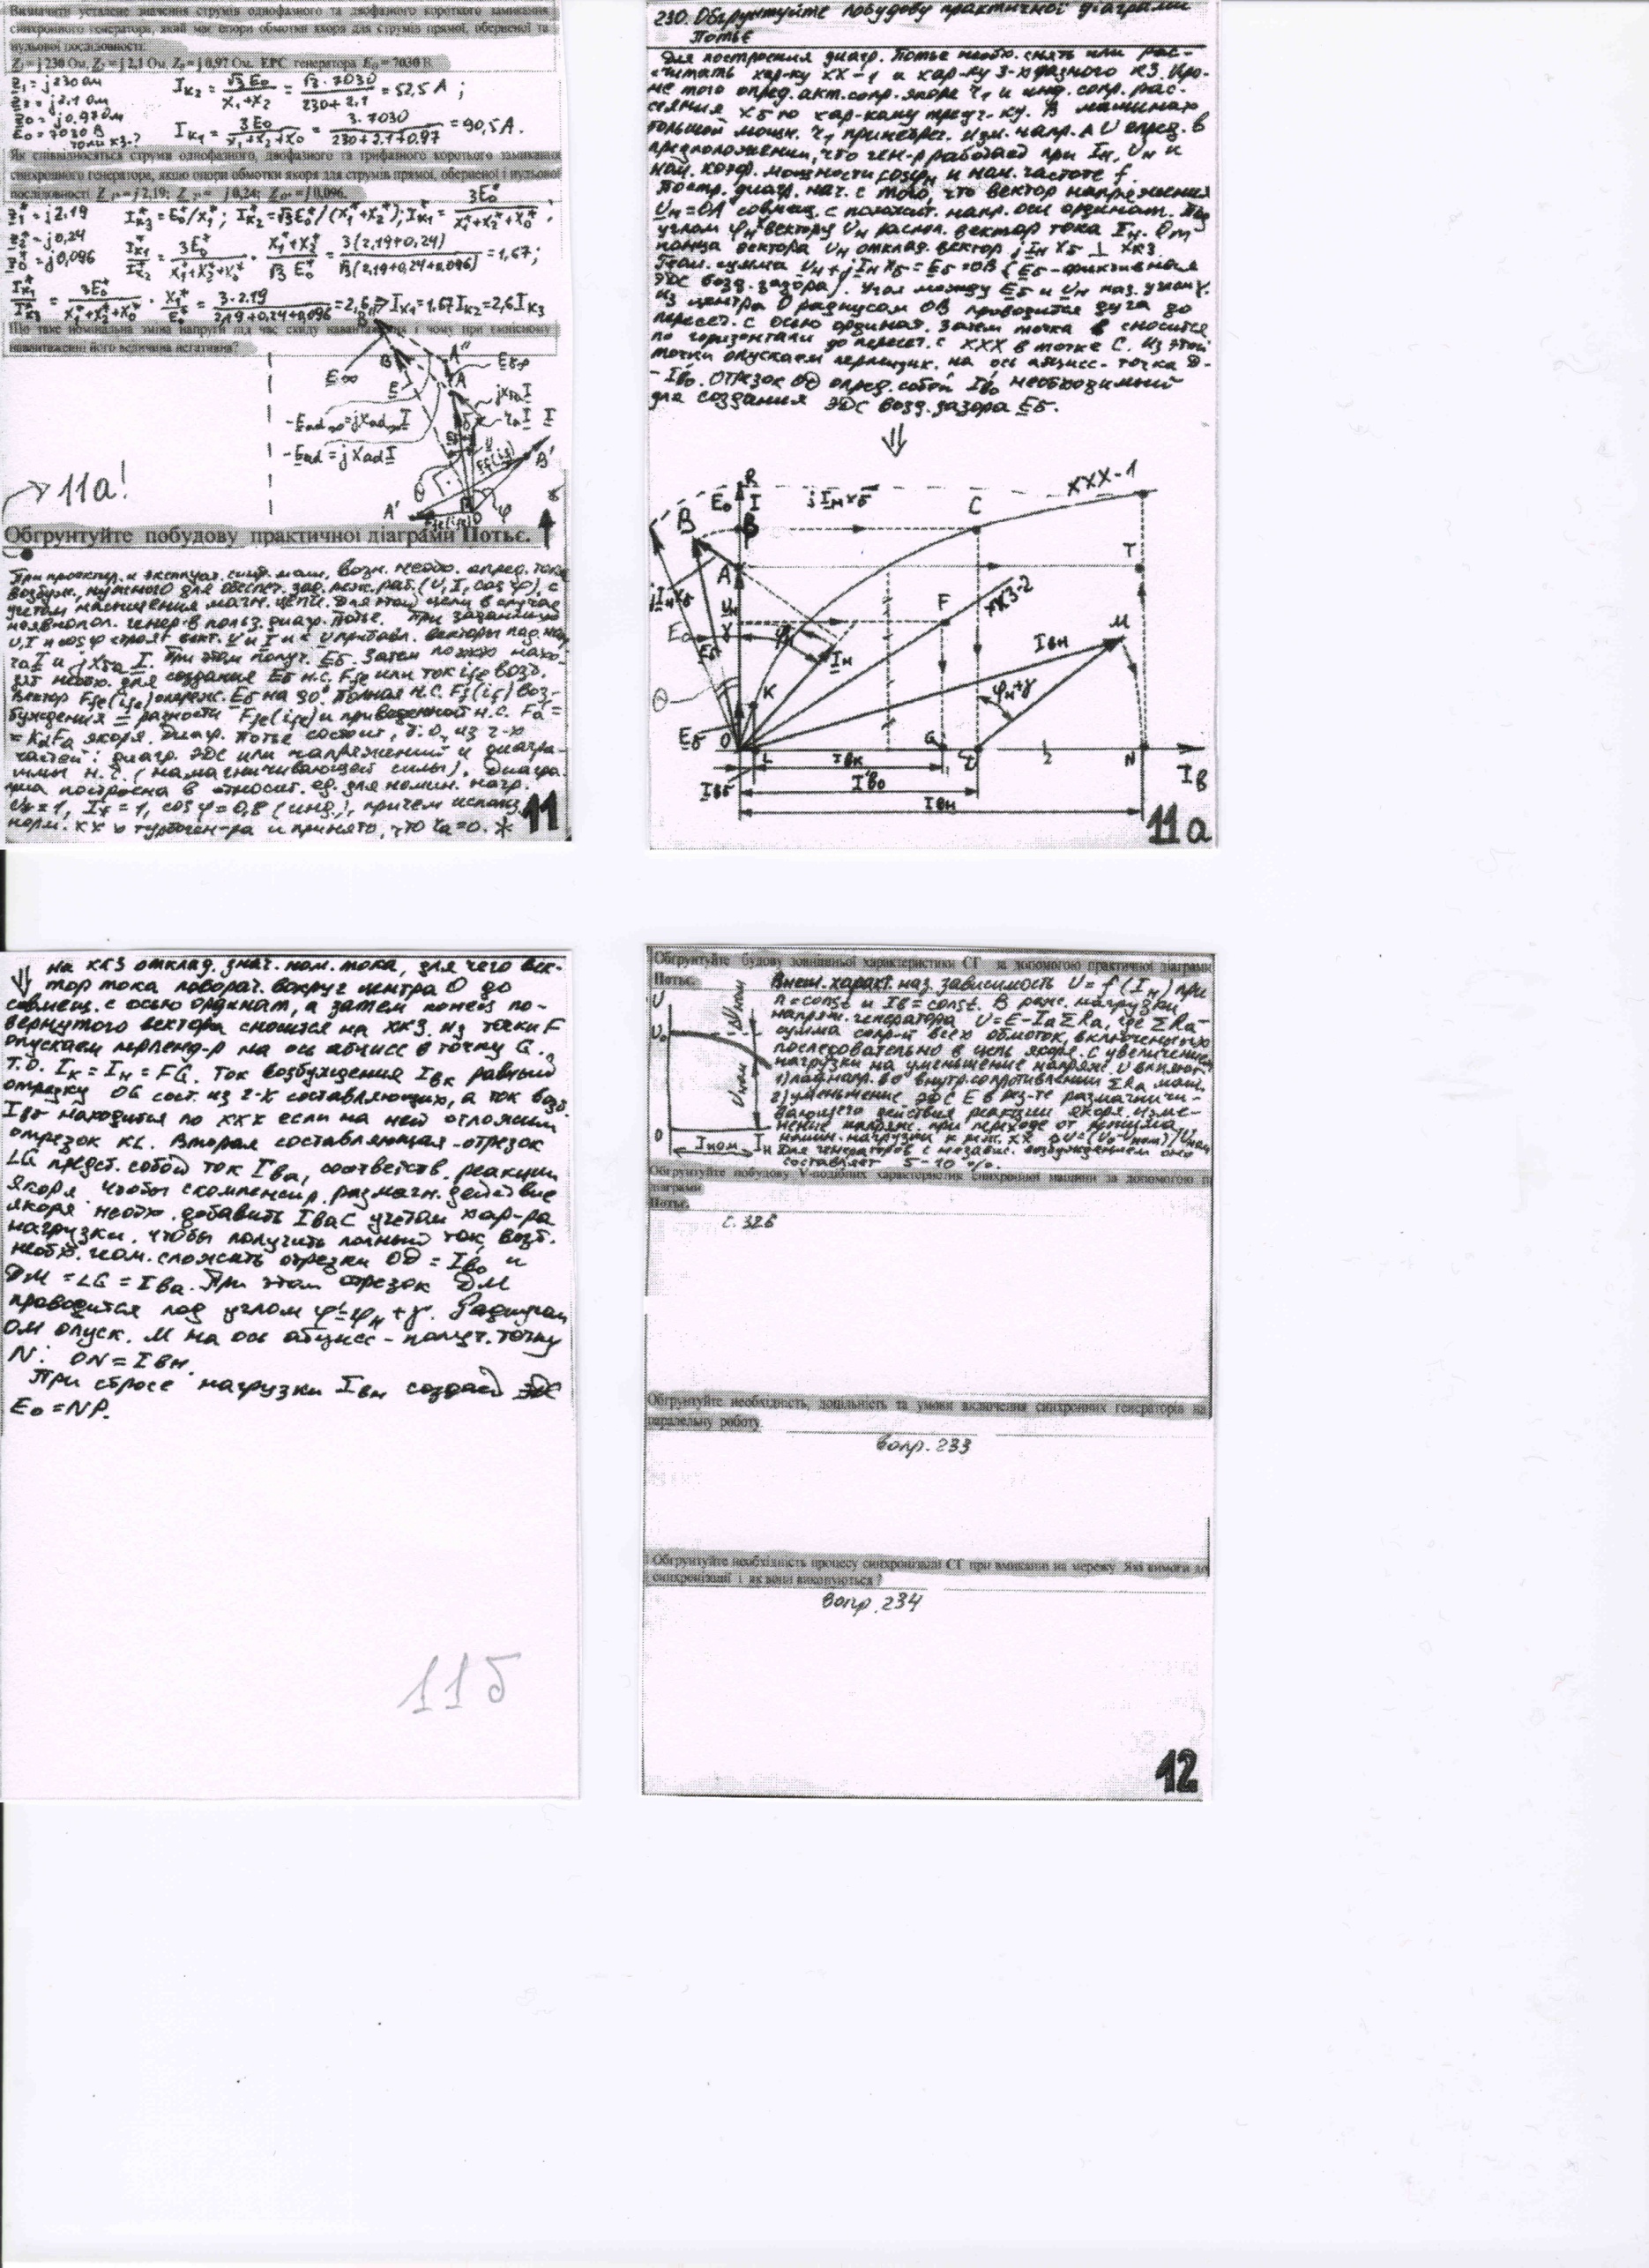 Визначити усталене значення струмів однофазного та двофазного короткого замикання
синхронного генератора, який має опори обмотки якоря для струмів прямої, оберненої та
нульової послідовності:
Z₁ = j 230 Ом, Z₂ = j 2,1 Ом, Z₀ = j 0,97 Ом. ЕРС генератора E₀ = 7030 В.
z₁ = j230 Ом
z₂ = j2.1 Ом
z₀ = j0.97 Ом
E₀ = 7030 В
токи кз-?
Iк₂ = √3 E₀ / (x₁+x₂) = √3 · 7030 / (230+2,1) = 52,5 А ;
Iк₁ = 3E₀ / (x₁+x₂+x₀) = 3·7030 / (230+2.1+0.97) = 90,5 А.
Як співвідносяться струми однофазного, двофазного та трифазного короткого замикання
синхронного генератора, якщо опори обмотки якоря для струмів прямої, оберненої і нульової
послідовності Z₁* = j 2,19; Z₂* = j 0,24; Z₀* = j 0,096.
z₁* = j2,19
z₂* = j0,24
z₀* = j0,096
Iк₃* = E₀*/x₁* ; Iк₂* = √3E₀*/(x₁*+x₂*); Iк₁* = 3E₀* / (x₁*+x₂*+x₀*) ;
Iк₁*/Iк₂* = 3E₀* / (x₁*+x₂*+x₀*) · (x₁*+x₂*) / √3 E₀* = 3(2,19+0,24) / √3(2,19+0,24+0,096) = 1,67;
Iк₁*/Iк₃* = 3E₀* / (x₁*+x₂*+x₀*) · x₁*/E₀* = 3·2.19 / (2,19+0,24+0,096) = 2,6 ⇒ Iк₁=1.67Iк₂=2,6Iк₃
Що таке номінальна зміна напруги під час скиду навантаження і чому при ємнісному
навантаженні його величина негативна?
11а!
Обґрунтуйте побудову практичної діаграми Потьє.
При проектир. и эксплуат. синх. маш. возн. необх. опред. тока
возбужд., нужного для обеспеч. зад. реж. раб. (U, I, cos φ), с
учетом насыщения магн. цепи. Для этой цели в случае
неявнопол. генер-в польз. диагр. Потье. При заданных
U, I и cos φ строят вект. U и I и к U прибавл. векторы пад. нап.
rаI и jxσа I. При этом получ. Eδ. Затем по ххх нахо-
дят необх. для создания Eδ н.с. Ffδ или ток ifδ возб.
Вектор Ffδ(ifδ) опереж. Eδ на 90°. Полная н.с. Ff(if) воз-
буждения = разности Ffδ(ifδ) и приведенной н.с. F'a =
= KdFa якоря. Диагр. Потье состоит, т.о. из 2-х
частей: диагр. ЭДС или напряжений и диагра-
ммы н.с. (намагничивающей силы). Диагра-
мма построена в относит. ед. для номин. нагр.
U* = 1, I* = 1, cos φ = 0,8 (инд.), причем использ.
норм. хх х турбоген-ра и принято, что ra = 0. *
11
230. Обгрунтуйте побудову практичної діаграми
Потьє
Для построения диагр. Потье необх. снять или рас-
считать хар-ку ХХ-1 и хар-ку 3-х фазного КЗ. Кро-
ме того опред. акт. сопр. якоря r₁ и инд. сопр. рас-
сеяния xδ по хар-кому треуг-ку. В машинах
большой мощн. r₁ пренебрег. Изм. напр. ΔU опред. в
предположении, что ген-р работает при Iн, Uн и
ном. коэф. мощности cosφн и ном. частоте f.
Постр. диагр. нач. с того, что вектор напряжения
Uн = OA совмещ. с положит. напр. оси ординат. Под
углом φн к вектору Uн распол. вектор тока Iн. От
конца вектора Uн отклад. вектор jIн xδ ⊥
Геом. сумма Uн + jIн xδ = Eδ = OB (Eδ - фиктивная
ЭДС возд. зазора). Угол между Eδ и Uн наз. углом γ.
Из центра О радиусом ОВ проводится дуга до
пересеч. с осью ординат. Затем точка В сносится
по горизонтали до пересеч. с ХХХ в точке С. Из этой
точки опускаем перпендик. на ось абцисс - точка D-
- Iв₀. Отрезок OD опред. собой Iв₀ необходимый
для создания ЭДС возд. зазора Eδ.
R
E₀
I
jIн xδ
C
XXX-1
B
A
T
F
ХКЗ-2
M
Iвн
φн+γ
Iн
K
θ
Eδ
O
L
G
D
N
Iв
Iвк
Iв₀
Iвδ
Iвн
11а
На ХКЗ отклад. знач. ном. тока, для чего век-
тор тока поворач. вокруг центра О до
совмещ. с осью ординат, а затем конец по-
вернутого вектора сносится на ХКЗ. Из точки F
опускаем перпенд-р на ось абцисс в точку G.
Т.О. Iк = Iн = FG. Ток возбуждения Iвк равный
отрезку OG сост. из 2-х составляющих, а ток возб.
Iвδ находится по ХХХ если на ней отложим
отрезок KL. Вторая составляющая - отрезок
LG предст. собой ток Iва, соответств. реакции
якоря. Чтобы скомпенсир. размагн. действие
якоря необх. добавить Iва с учетом хар-ра
нагрузки. Чтобы получить полный ток возб.
необх. геом. сложить отрезки OD = Iв₀ и
DM = LG = Iва. При этом отрезок DM
проводится под углом φ' = φн + γ. Радиусом
ОМ опуск. М на ось абцисс - получ. точку
N: ON = Iвн.
При сбросе нагрузки Iвн создаст ЭДС
E₀ = NP.
11б
Обґрунтуйте будову зовнішньої характеристики СГ за допомогою практичної діаграми
Потьє.
Внеш. характ. наз. зависимость U = f (Iн) при
n = const и Iв = const. В реж. нагрузки
напряж. генератора U = E - Ia ΣRa, где ΣRa -
сумма сопр-й всех обмоток, включенных
последовательно в цепь якоря. С увеличением
нагрузки на уменьшение напряж. U влияют:
1) пад. напр. во внутр. сопротивлении ΣRa маш.
2) уменьшение ЭДС Е в рез-те размагничи-
вающего действия реакции якоря. Изме-
нение напряж. при переходе от режима
номин. нагрузки к реж. ХХ ΔU = (U₀-Uном)/Uном
Для генераторов с независ. возбуждением оно
составляет 5-10 %.
U
U₀
ΔUном
Uном
0
Iном
Iн
Обґрунтуйте побудову V-подібних характеристик синхронної машини за допомогою п
діаграми
Потьє.
с. 326
Обґрунтуйте необхідність, доцільність та умови включення синхронних генераторів на
паралельну роботу.
вопр. 233
Обґрунтуйте необхідність процесу синхронізації СГ при вмиканні на мережу. Які вимоги до
синхронізації і як вони виконуються ?
вопр. 234
12